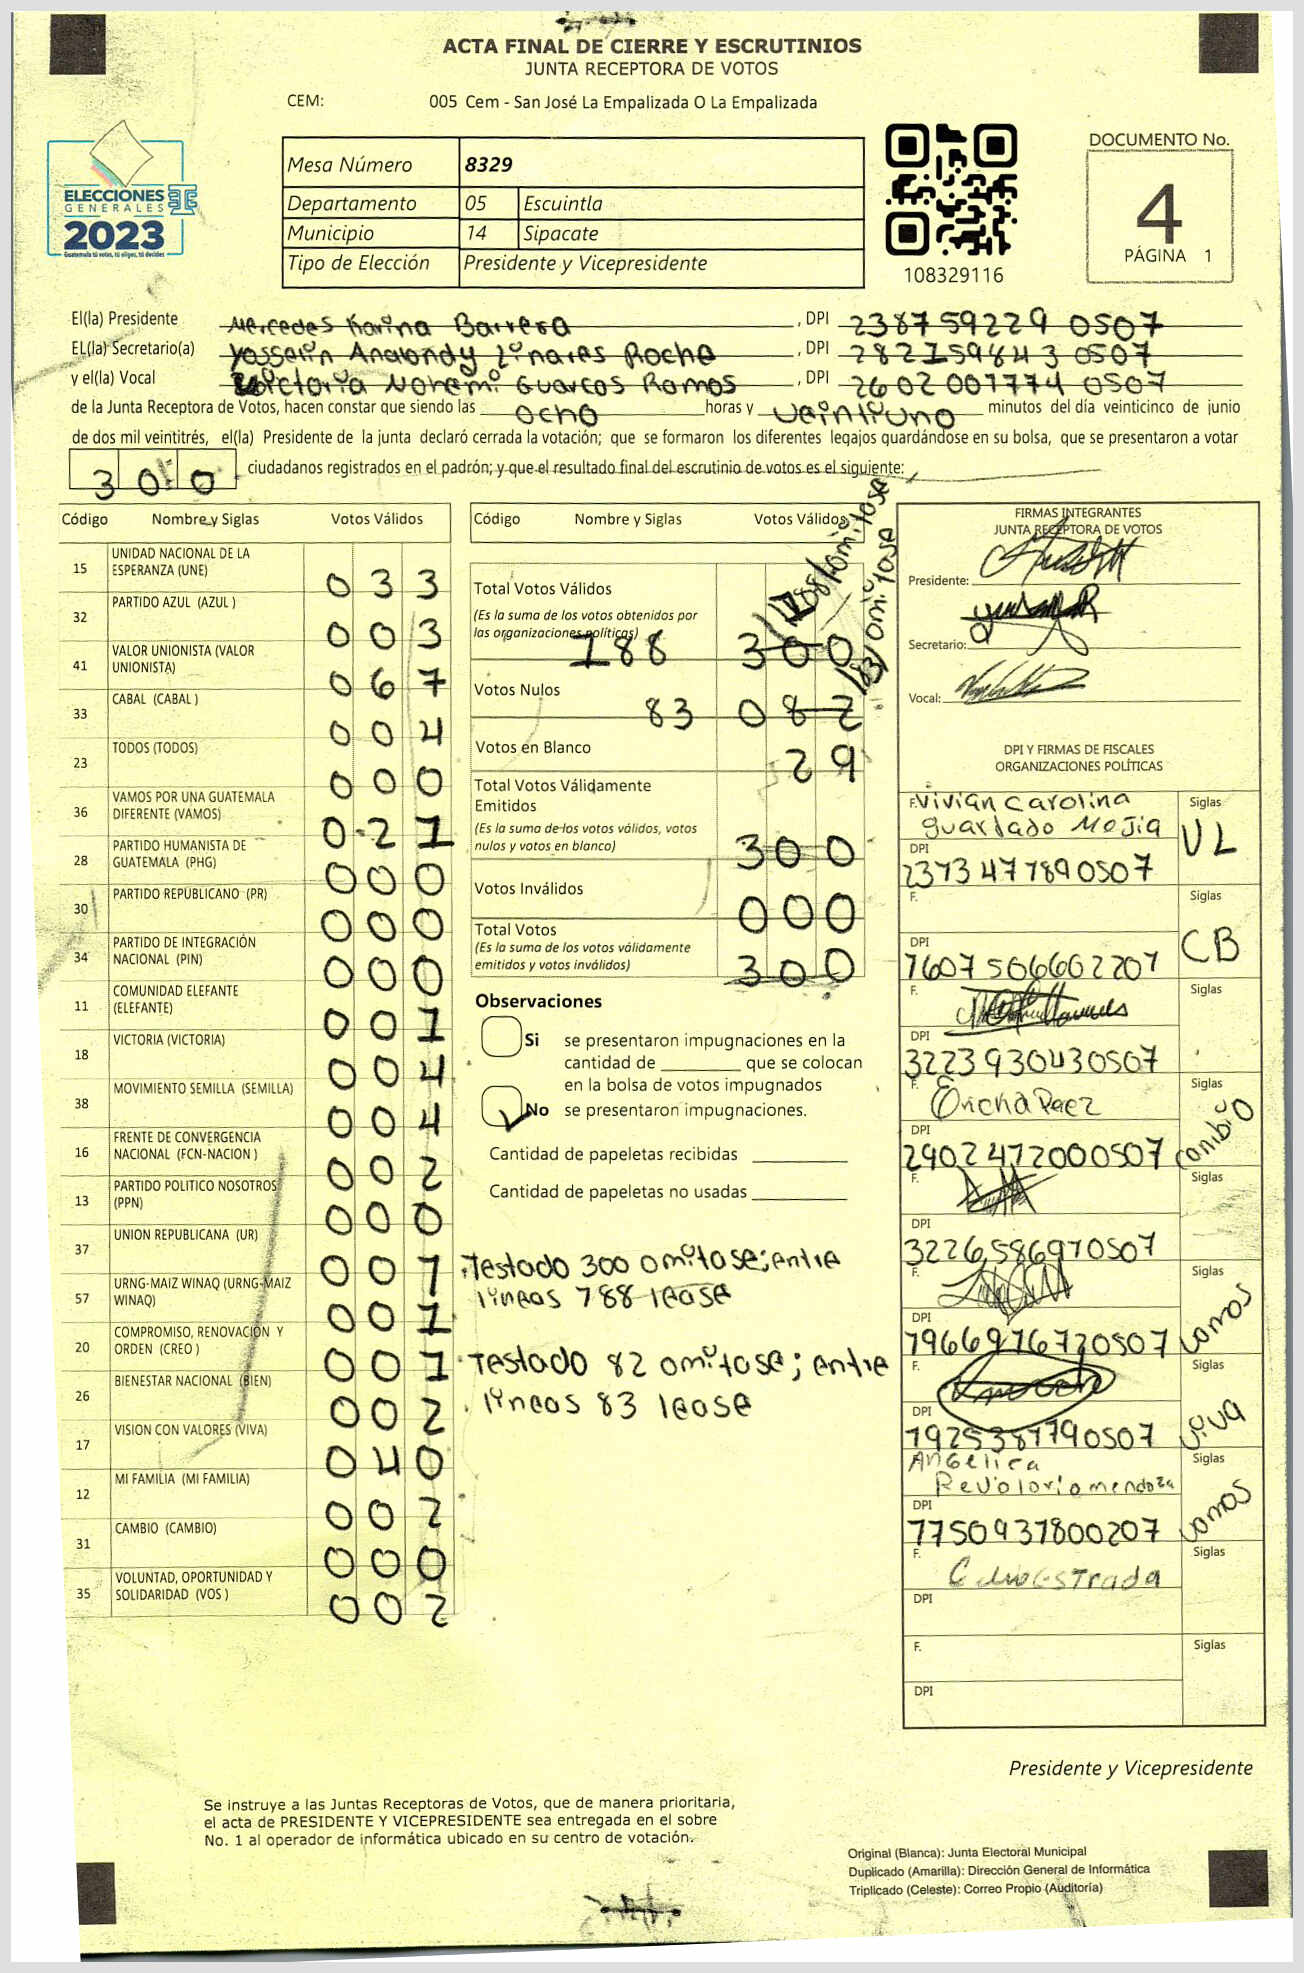 ACTA FINAL DE CIERRE Y ESCRUTINIOS
JUNTA RECEPTORA DE VOTOS
CEM: 005 Cem - San José La Empalizada O La Empalizada
ELECCIONES
GENERALES
2023
Guatemala tú votas, tú eliges, tú decides
Mesa Número 8329
Departamento 05 Escuintla
Municipio 14 Sipacate
Tipo de Elección Presidente y Vicepresidente
108329116
DOCUMENTO No.
4
PÁGINA 1
El(la) Presidente Mercedes Karina Barrera , DPI 238759229 0507
EL(la) Secretario(a) Yosselin Linares Roche , DPI 282159843 0507
y el(la) Vocal Victoria Nohemi Guarcos Ramos , DPI 2602001774 0507
de la Junta Receptora de Votos, hacen constar que siendo las ocho horas y veintiuno minutos del día veinticinco de junio
de dos mil veintitrés, el(la) Presidente de la junta declaró cerrada la votación; que se formaron los diferentes legajos guardándose en su bolsa, que se presentaron a votar
300 ciudadanos registrados en el padrón; y que el resultado final del escrutinio de votos es el siguiente:
Código Nombre y Siglas Votos Válidos
15 UNIDAD NACIONAL DE LA ESPERANZA (UNE) 033
32 PARTIDO AZUL (AZUL ) 003
41 VALOR UNIONISTA (VALOR UNIONISTA) 067
33 CABAL (CABAL ) 004
23 TODOS (TODOS) 000
36 VAMOS POR UNA GUATEMALA DIFERENTE (VAMOS) 021
28 PARTIDO HUMANISTA DE GUATEMALA (PHG) 000
30 PARTIDO REPUBLICANO (PR) 000
34 PARTIDO DE INTEGRACIÓN NACIONAL (PIN) 000
11 COMUNIDAD ELEFANTE (ELEFANTE) 001
18 VICTORIA (VICTORIA) 004
38 MOVIMIENTO SEMILLA (SEMILLA) 004
16 FRENTE DE CONVERGENCIA NACIONAL (FCN-NACION ) 002
13 PARTIDO POLITICO NOSOTROS (PPN) 000
37 UNION REPUBLICANA (UR) 001
57 URNG-MAIZ WINAQ (URNG-MAIZ WINAQ) 001
20 COMPROMISO, RENOVACIÓN Y ORDEN (CREO ) 001
26 BIENESTAR NACIONAL (BIEN) 002
17 VISION CON VALORES (VIVA) 040
12 MI FAMILIA (MI FAMILIA) 002
31 CAMBIO (CAMBIO) 000
35 VOLUNTAD, OPORTUNIDAD Y SOLIDARIDAD (VOS ) 002
Código Nombre y Siglas Votos Válidos
Total Votos Válidos
(Es la suma de los votos obtenidos por
las organizaciones políticas)
188 300
188/omitase
183/omitase
Votos Nulos
83 082
Votos en Blanco 29
Total Votos Válidamente
Emitidos
(Es la suma de los votos válidos, votos
nulos y votos en blanco)
300
Votos Inválidos 000
Total Votos
(Es la suma de los votos válidamente
emitidos y votos inválidos)
300
Observaciones
Si se presentaron impugnaciones en la
cantidad de ________ que se colocan
en la bolsa de votos impugnados
No se presentaron impugnaciones.
Cantidad de papeletas recibidas
Cantidad de papeletas no usadas
Testado 300 omitase; entre
lineas 188 lease
Testado 82 omitase; entre
lineas 83 lease
FIRMAS INTEGRANTES
JUNTA RECEPTORA DE VOTOS
Presidente:
Secretario:
Vocal:
DPI Y FIRMAS DE FISCALES
ORGANIZACIONES POLÍTICAS
F. Vivian Carolina
Guardado Mejia
Siglas
VL
DPI
2373477890507
F.
Siglas
CB
DPI
1607506602207
F.
Siglas
DPI
3223930430507
F.
Siglas
Cambio
DPI
2902472000507
F.
Siglas
DPI
3226586970507
F.
Siglas
Vamos
DPI
1966976720507
F.
Siglas
Viva
DPI
1925381790507
Angelica
Revolorio mendoza
Siglas
Vamos
DPI
7750937800207
F. Estrada
Siglas
DPI
F.
Siglas
DPI
Presidente y Vicepresidente
Se instruye a las Juntas Receptoras de Votos, que de manera prioritaria,
el acta de PRESIDENTE Y VICEPRESIDENTE sea entregada en el sobre
No. 1 al operador de informática ubicado en su centro de votación.
Original (Blanca): Junta Electoral Municipal
Duplicado (Amarilla): Dirección General de Informática
Triplicado (Celeste): Correo Propio (Auditoría)